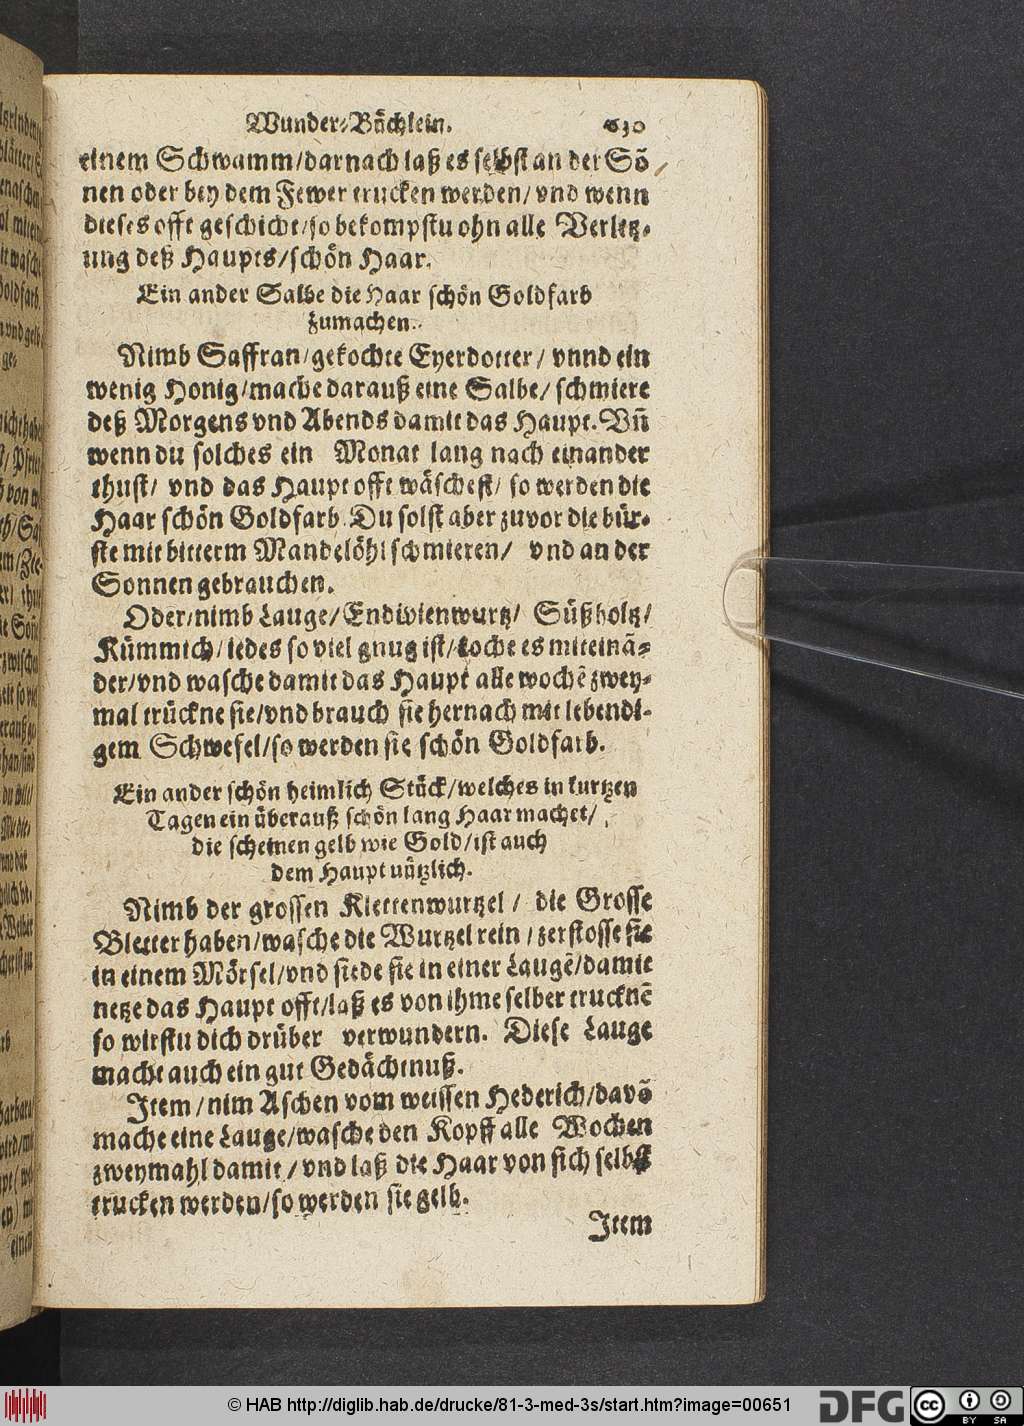 Wunder-Büchlein. 630
einem Schwamm/darnach laß es selbst an der Sõ
nen oder bey dem Fewer trucken werden/vnd wenn
dieses offt geschicht/so bekompstu ohn alle Verletz-
ung deß Haupts/schön Haar.
Ein ander Salbe die Haar schön Goldfarb
zumachen.
Nimb Saffran/gekochte Eyerdotter/vnnd ein
wenig Honig/mache darauß eine Salbe/schmiere
deß Morgens vnd Abends damit das Haupt. Vñ
wenn du solches ein Monat lang nach einander
thust/ vnd das Haupt offt wäschest/ so werden die
Haar schön Goldfarb. Du solst aber zuvor die bür-
ste mit bitterm Mandelöhl schmieren/ vnd an der
Sonnen gebrauchen.
Oder/nimb Lauge/Endivienwurtz/ Süßholtz/
Kümmich/iedes so viel gnug ist/koche es miteinã-
der/vnd wasche damit das Haupt alle wochẽ zwey-
mal trückne sie/vnd brauch sie hernach mit lebendi-
gem Schwefel/so werden sie schön Goldfarb.
Ein ander schön heimlich Stück/welches in kurtzen
Tagen ein überauß schön lang Haar machet/
die scheinen gelb wie Gold/ist auch
dem Haupt nützlich.
Nimb der grossen Klettenwurtzel/ die Grosse
Bletter haben/wasche die Wurtzel rein/zerstosse sie
in einem Mörsel/vnd siede sie in einer Laugẽ/damit
netze das Haupt offt/laß es von ihme selber trucknẽ
so wirstu dich drüber verwundern. Diese Lauge
macht auch ein gut Gedächtnuß.
Item/nim Aschen vom weissen Hederich/davõ
mache eine Lauge/wasche den Kopff alle Wochen
zweymahl damit/vnd laß die Haar von sich selbst
trucken werden/so werden sie gelb.
Item
© HAB http://diglib.hab.de/drucke/81-3-med-3s/start.htm?image=00651
DFG
cc BY SA